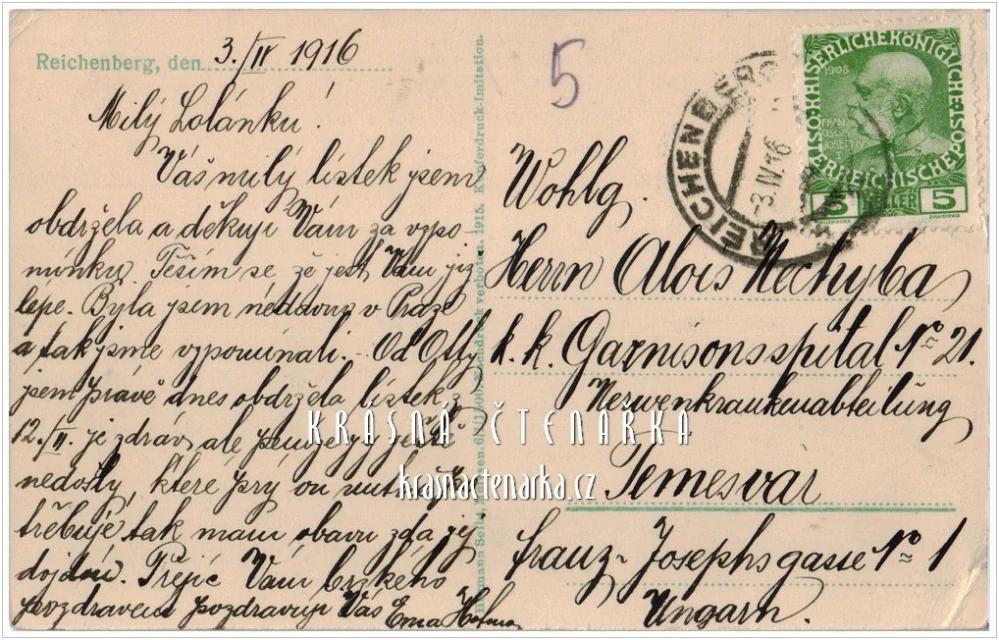 Reichenberg, den 3./IV 1916
Milý Lolánku!
Váš milý lístek jsem
obdržela a děkuji Vám za vzpo
mínku. Těším se že jest Vám již
lépe. Byla jsem nedávno v Praze
a tak jsme vzpomínali. Od Otty
jsem právě dnes obdržela lístek z
12./II. je zdráv, ale peníze ještě
nedošly, které prý on nutně
třebuje tak mám obavu zda jej
dojdou. Přejíc Vám brzkého
pozdravení pozdravuji Vás Ema
Hermann Seibt, Meissen. Nachdruck verboten. 1915. Kupferdruck-Imitation.
5
REICHENBERG
3.IV.16
KAISERLICHE KÖNIGLICHE
ÖSTERREICHISCHE POST
1908
FRAN
CISCVS
IOSEPH I
5 HELLER 5
Wohlg.
Herrn Alois Nechyba
k. k. Garnisonsspital No 21.
Nervenkrankenabteilung
Temesvar
Franz-Josephsgasse No 1
Ungarn.
KRÁSNÁ ČTENÁŘKA
krasnactenarka.cz